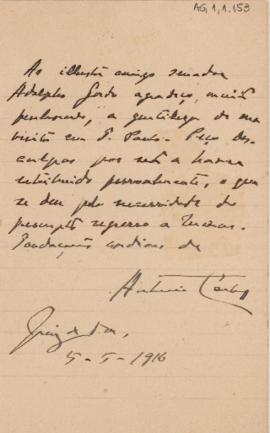 AG.1.1.153
Ao illustre amigo senador
Adolpho Gordo agradeço, muito
penhorado, a gentileza de sua
visita em S. Paulo. Peço des-
culpas por não a haver
retribuido pessoalmente, o que
se deu pela necessidade de
regresso a Minas.
Saudações cordiaes de
Antonio Carlos
Juiz de Fóra,
5-5-1916